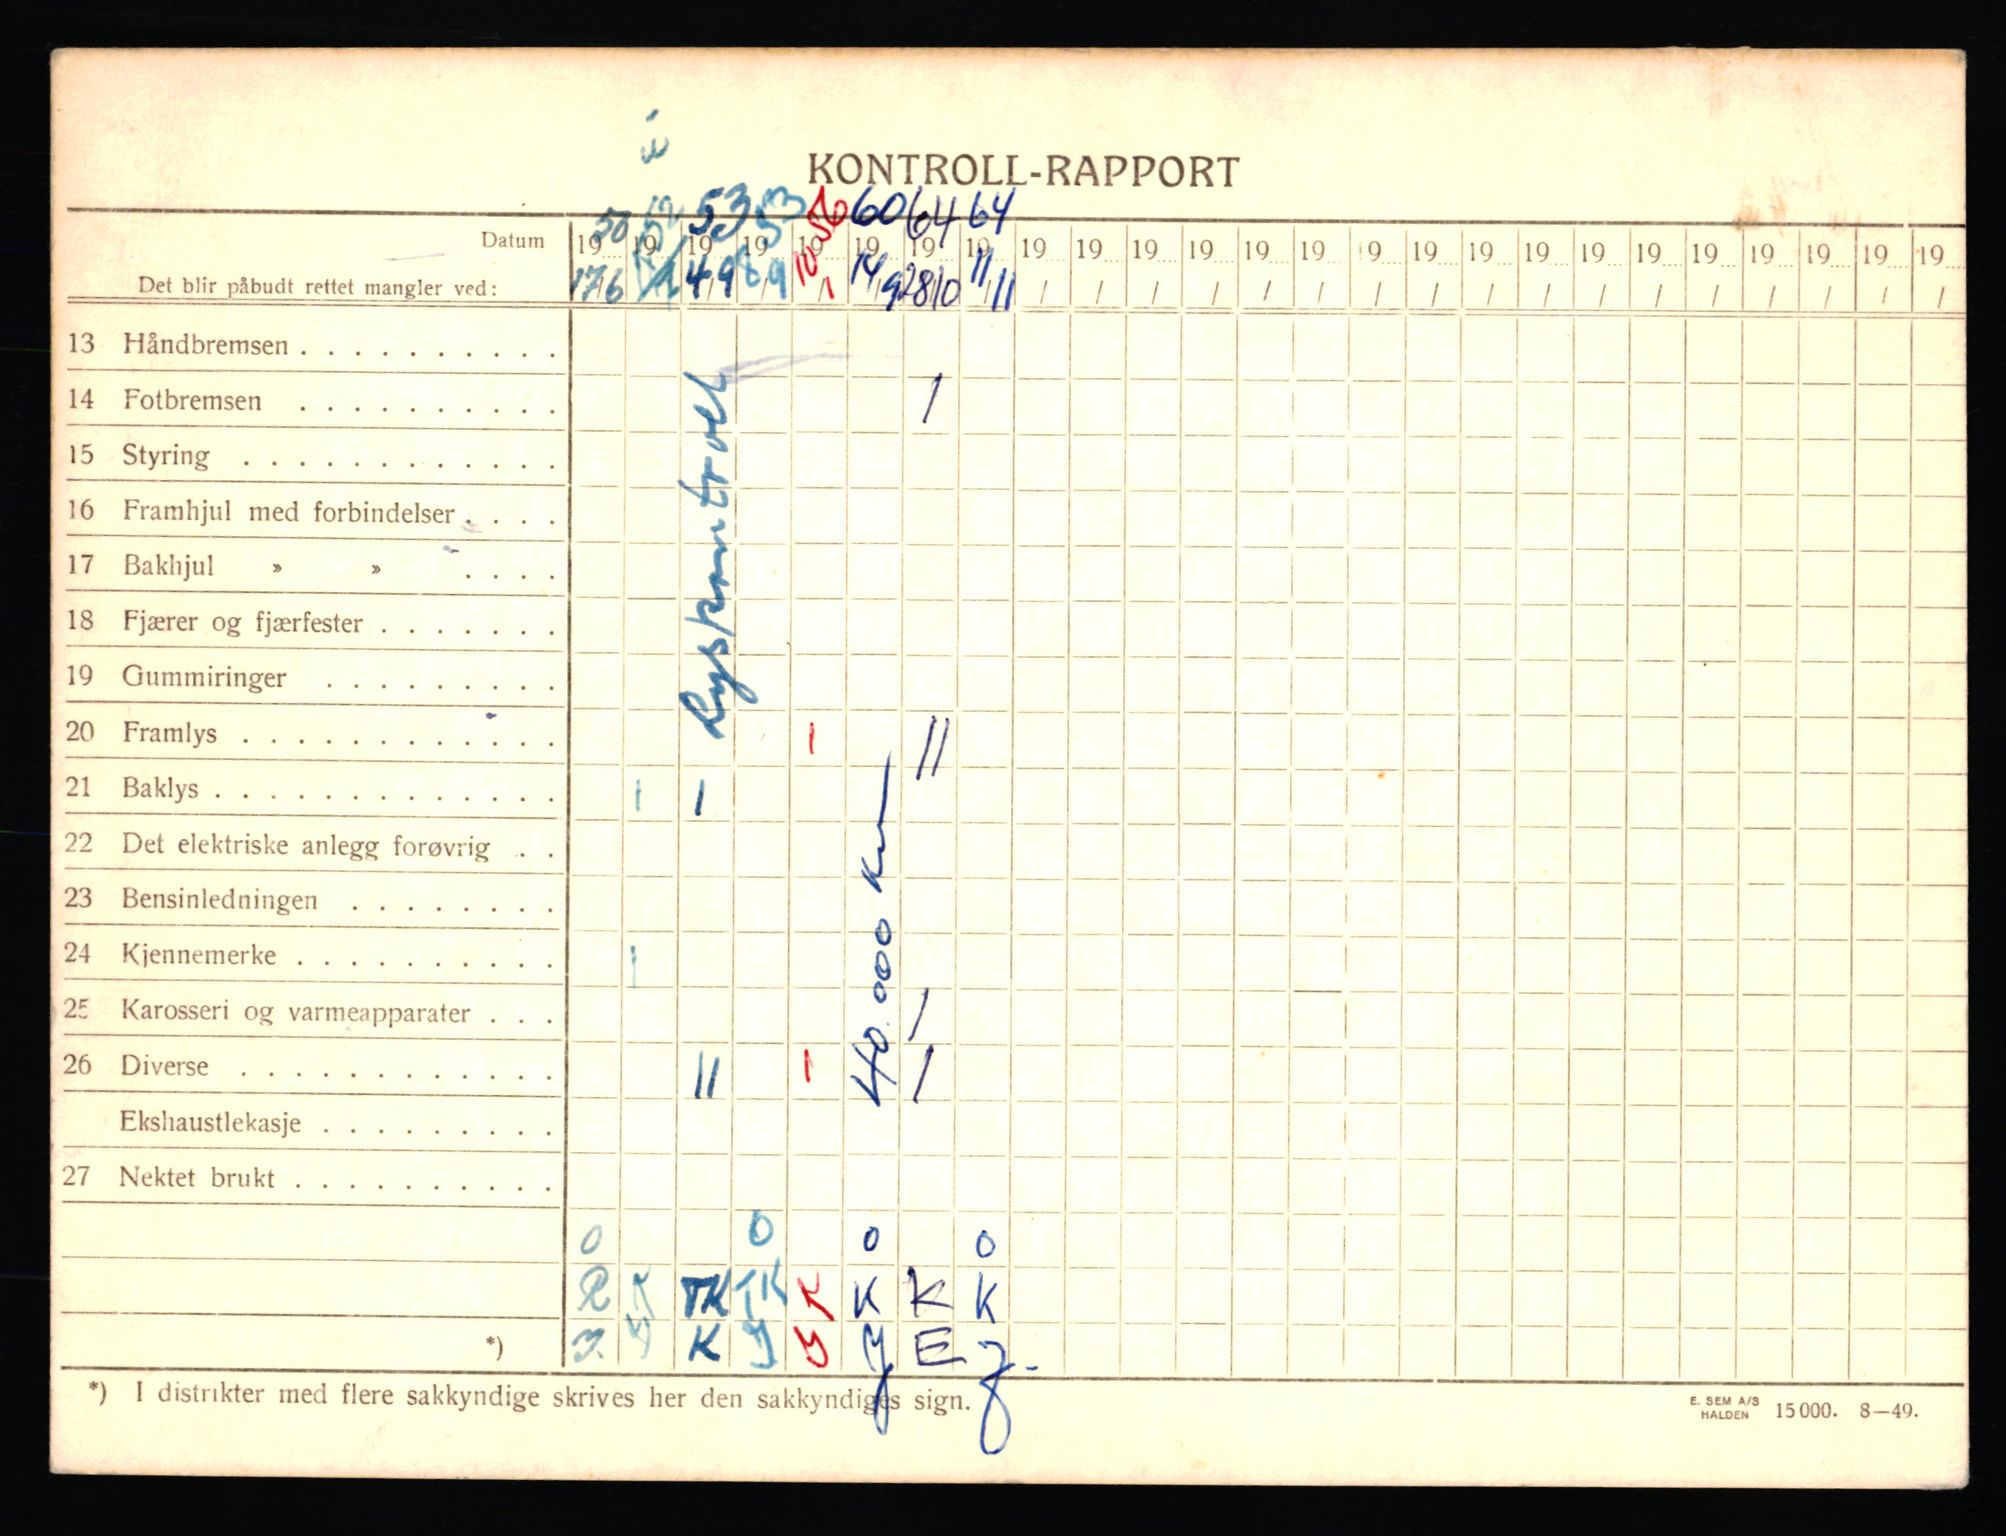 KONTROLL-RAPPORT
50 52 53 53 56 60 64 64
Datum 19 19 19 19 19 19 19 19 19 19 19 19 19 19 19 19 19 19 19 19 19 19 19 19 19
Det blir påbudt rettet mangler ved: 17/6 4/9 8/9 10/1 14/9 28/10 11/11 / / / / / / / / / / / / / / / / /
13 Håndbremsen
14 Fotbremsen /
15 Styring
16 Framhjul med forbindelser
17 Bakhjul » »
18 Fjærer og fjærfester
19 Gummiringer
Lyskontroll
20 Framlys | ||
21 Baklys | |
22 Det elektriske anlegg forøvrig
23 Bensinledningen
24 Kjennemerke |
25 Karosseri og varmeapparater /
26 Diverse || | /
40.000 Km
Ekshaustlekasje
27 Nektet brukt
0 0 0 0
R K TK TK K K K K
K E
*)
*) I distrikter med flere sakkyndige skrives her den sakkyndiges sign.
E. SEM A/S
HALDEN 15000. 8—49.